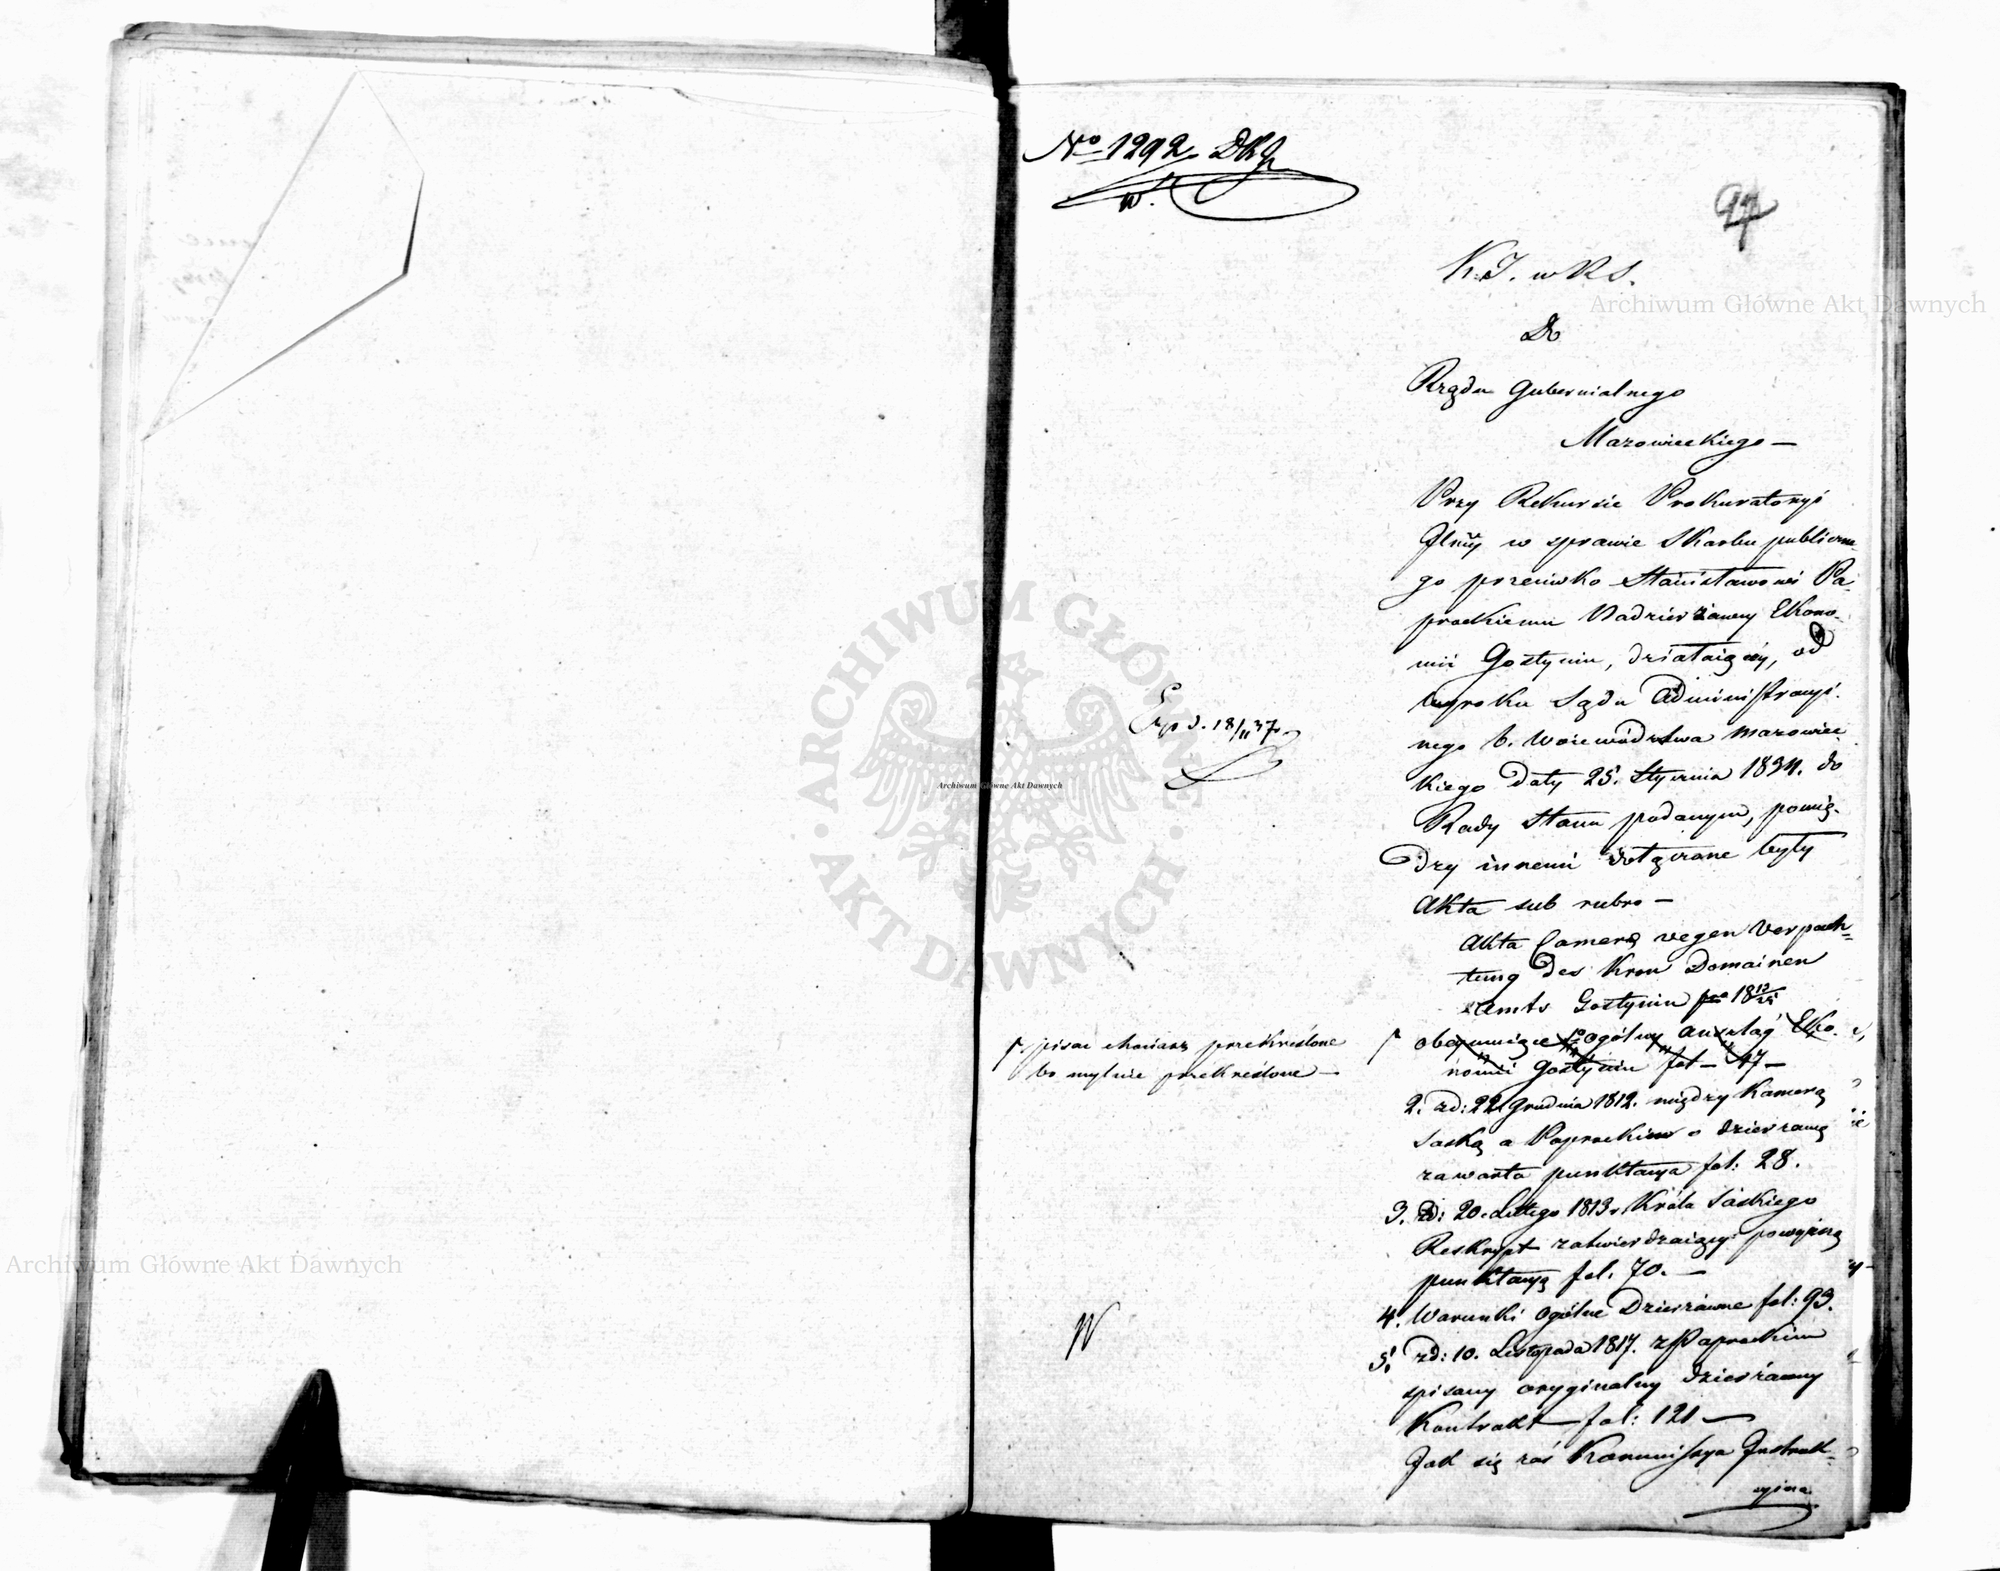 No 1292. DKJ
W.
97
K. I. w R S.
Do
Rządu Gubernialnego
Mazowieckiego —
Przy Rekursie Prokuratoryi
Jlnéy w sprawie Skarbu publiczne-
go przeciwko Stanisławowi Pa-
prockiemu Naddzierżawcy Ekono-
mii Gostynin, działaiącéy, od
wyroku Sądu Administracyi-
nego b. Woiewództwa Mazowiec
kiego daty 25. Stycznia 1834. do
Rady Stanu podanym, pomię-
dzy innemi dołączone były
Akta sub rubro —
Akta Camera wegen Verpach-
tung des Kron Domainen
Amts Gostynin pro 18
obeymuiące 1o ogólny anszlag Eko-
nomii Gostynin fol — 47 —
2. zd: 22 Grudnia 1812. między Kamerą
Saską a Paprockim o dzierżawę
zawarta punktacya fol: 28.
3. zd: 20. Lutego 1813. Króla Saskiego
Reskrypt zatwierdzaiący powyższą
punktacyą fol. 70. —
4. Warunki ogólne Dzierżawne fol: 93.
5. zd: 10. Listopada 1817. z Paprockim
spisany oryginalny dzierżawny
Kontrakt — fol: 121 —
Jak się zaś Kommissya Instruk-
cyina
Exp d. 18/11 37.
pisać chociaż przekreślone
bo mylnie przekreślone —
W
Archiwum Główne Akt Dawnych
ARCHIWUM GŁÓWNE
AKT DAWNYCH
Archiwum Główne Akt Dawnych
Archiwum Główne Akt Dawnych